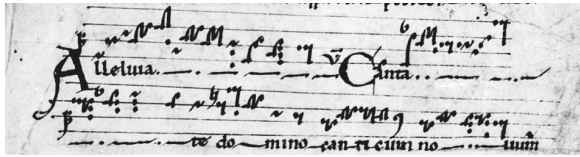 Alleluia. V̄ Canta . .
te do mino can ti cum no uum